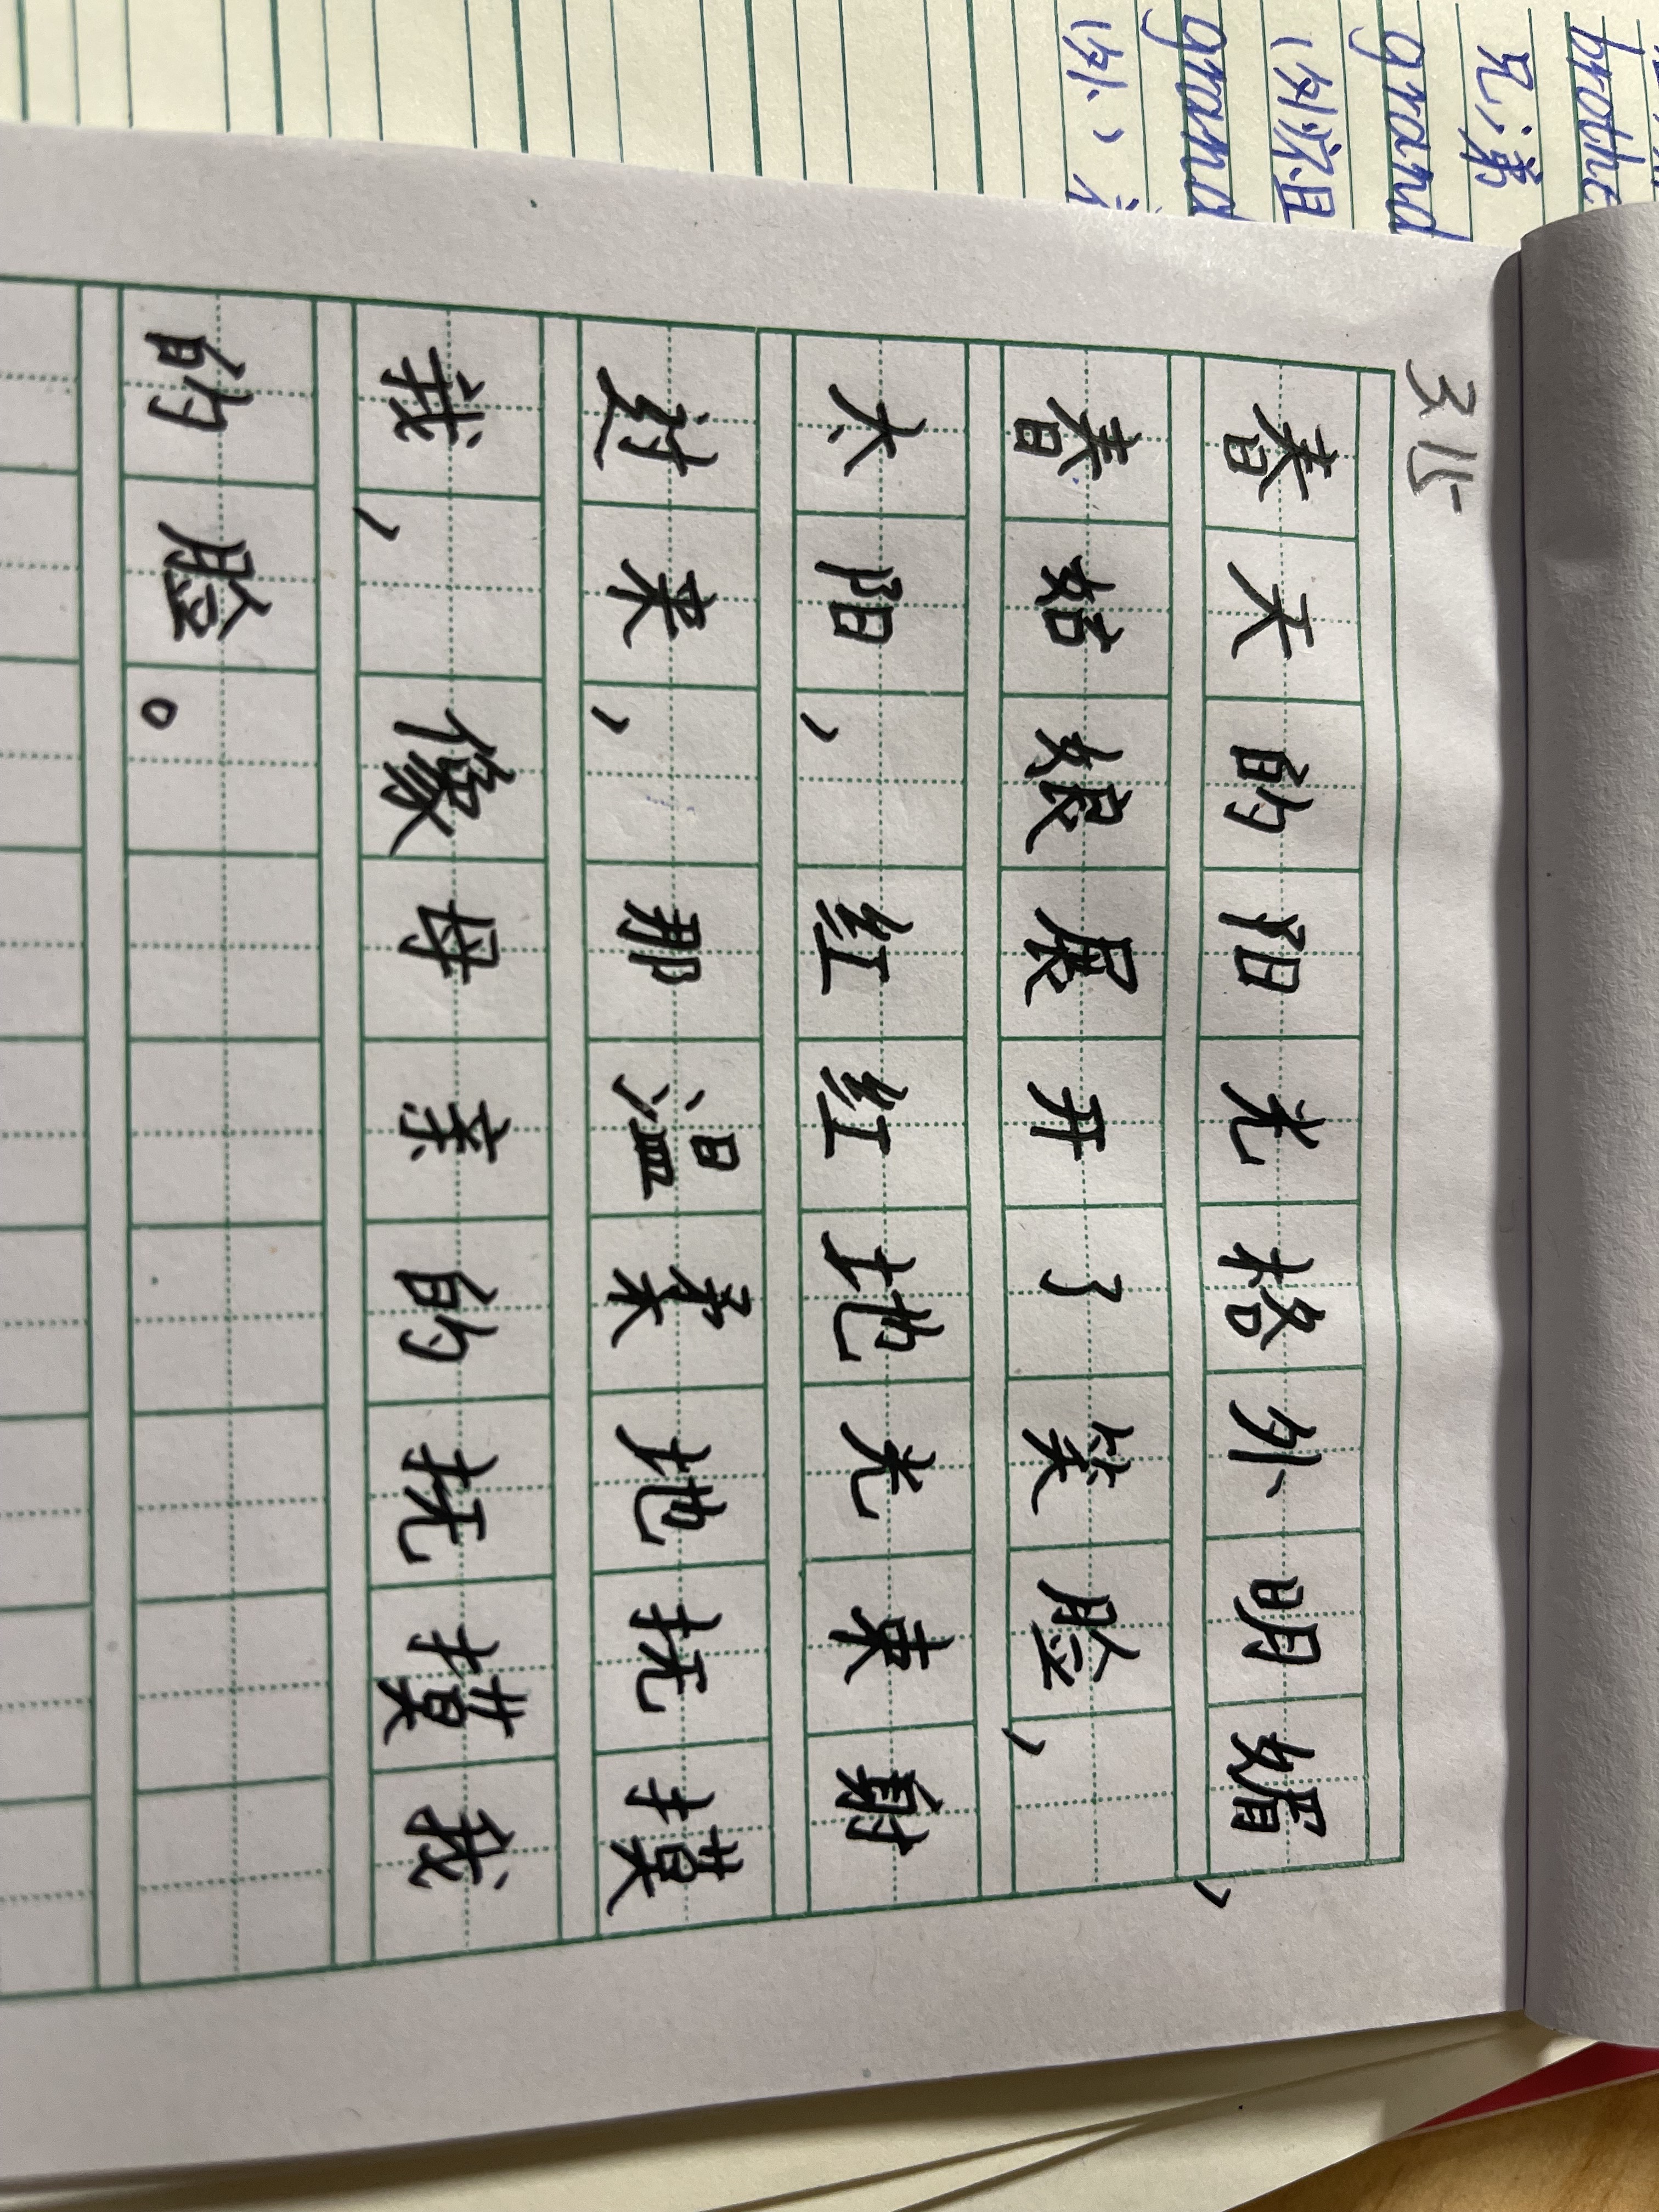 春天的阳光格外明媚，
春姑娘展开了笑脸，
太阳，红红地光束射
过来，那温柔地抚摸
我，像母亲的抚摸我
的脸。
brothe
兄弟
grand
(外祖
grand
(外